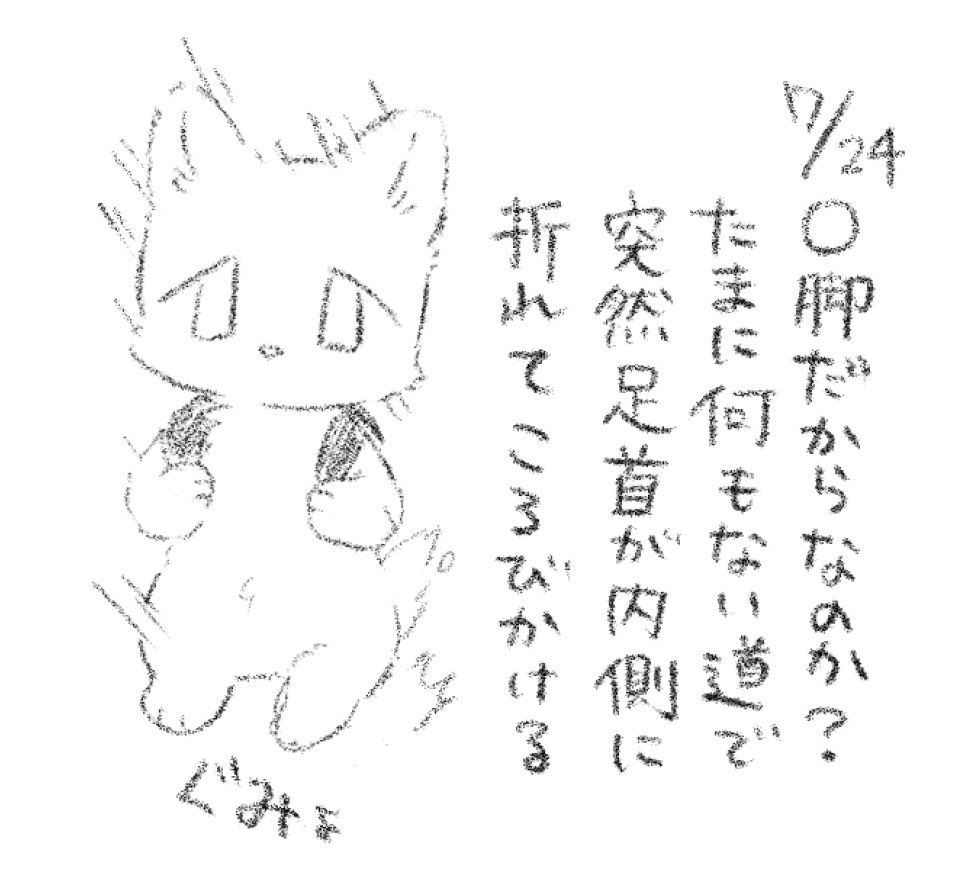 7/24
○脚だからなのか?
たまに何もない道で
突然足首が内側に
折れてころびかける